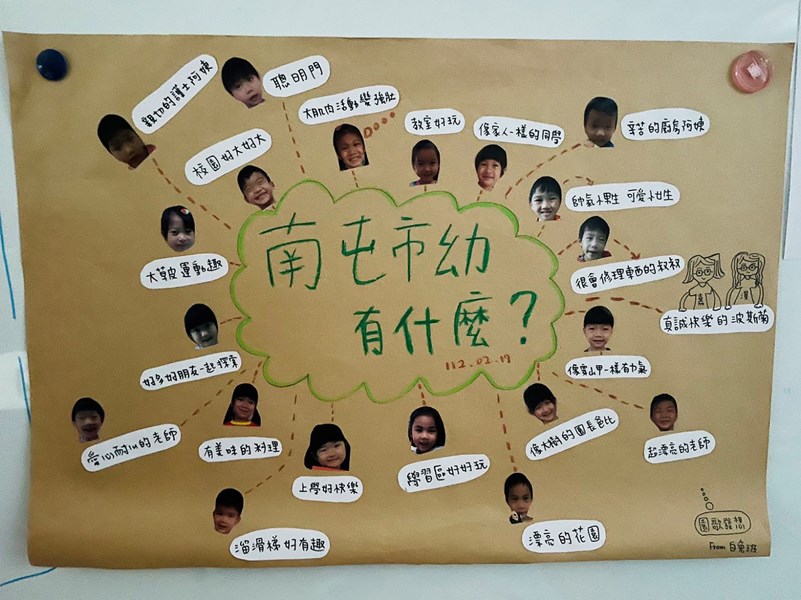 南屯市幼
有什麼？
112.02.17
親切的護士阿姨
聰明門
大肌肉活動變強壯
教室好玩
像家人一樣的同學
辛苦的廚房阿姨
校園好大好大
帥氣小男生 可愛小女生
大草皮運動趣
很會修理東西的叔叔
真誠快樂的波斯菊
好多好朋友一起探索
像穿山甲一樣有力氣
愛心耐心的老師
有美味的料理
上學好快樂
學習區好好玩
像大樹的園長爸比
超漂亮的老師
溜滑梯好有趣
漂亮的花園
園歌發想
From 白兔班